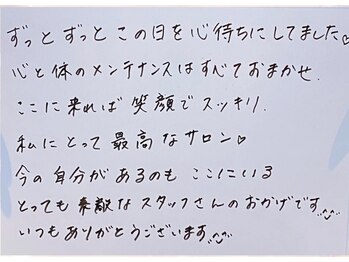 ずっとずっとこの日を心待ちにしてました♡
心と体のメンテナンスはすべておまかせ.
ここに来れば笑顔でスッキリ.
私にとって最高なサロン♡
今の自分があるのもここにいる
とっても素敵なスタッフさんのおかげです^^
いつもありがとうございます^^